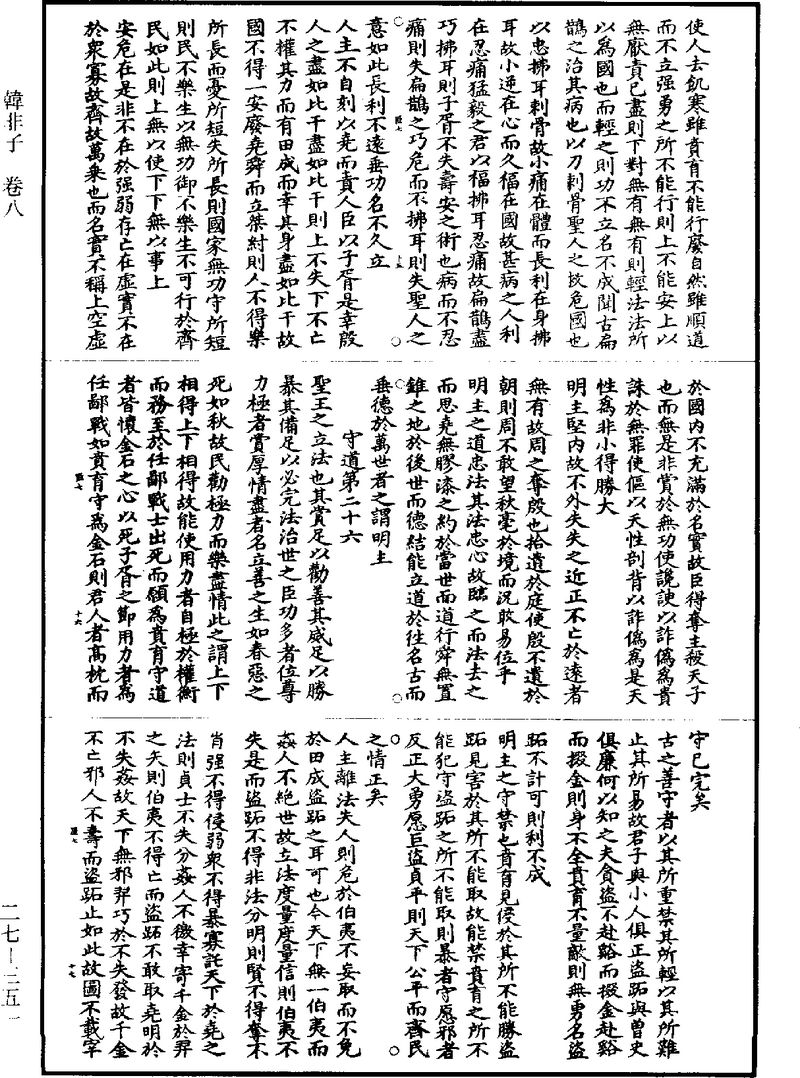 韓非子　卷八
使人去飢寒雖賁育不能行廢自然雖順道
而不立强勇之所不能行則上不能安上以
無厭責已盡則下對無有無有則輕法法所
以爲國也而輕之則功不立名不成聞古扁
鵲之治其病也以刀刺骨聖人之救危國也
以忠拂耳刺骨故小痛在體而長利在身拂
耳故小逆在心而久福在國故甚病之人利
在忍痛猛毅之君以福拂耳忍痛故扁鵲盡
巧拂耳則子胥不失壽安之術也病而不忍
痛則失扁鵲之巧危而不拂耳則失聖人之
意如此長利不遠垂功名不久立
人主不自刻以堯而責人臣以子胥是幸殷
人之盡如比干盡如比干則上不失下不亡
不權其力而有田成而幸其身盡如比干故
國不得一安廢堯舜而立桀紂則人不得樂
所長而憂所短失所長則國家無功守所短
則民不樂生以無功御不樂生不可行於齊
民如此則上無以使下下無以事上
安危在是非不在於强弱存亡在虛實不在
於衆寡故齊故萬乘也而名實不稱上空虛
於國內不充滿於名實故臣得奪主殺天子
也而無是非賞於無功使讒諛以詐僞爲貴
誅於無罪使傴以天性剖背以詐僞爲是天
性爲非小得勝大
明主堅內故不外失失之近正不亡於遠者
無有故周之奪殷也拾遺於庭使殷不遺於
朝則周不敢望秋毫於境而況敢易位乎
明主之道忠法其法忠心故臨之而法去之
而思堯無膠漆之約於當世而道行舜無置
錐之地於後世而德結能立道於往名古而
垂德於萬世者之謂明主
守道第二十六
聖王之立法也其賞足以勸善其威足以勝
暴其備足以必完法治世之臣功多者位尊
力極者賞厚情盡者名立善之生如春惡之
死如秋故民勸極力而樂盡情此之謂上下
相得上下相得故能使用力者自極於權衡
而務至於任鄙戰士出死而願爲賁育守道
者皆懷金石之心以死子胥之節用力者爲
任鄙戰如賁育守爲金石則君人者高枕而
守已完矣
古之善守者以其所重禁其所輕以其所難
止其所易故君子與小人俱正盜跖與曾史
俱廉何以知之夫貪盜不赴谿而掇金赴谿
而掇金則身不全賁育不量敵則無勇名盜
跖不計可則利不成
明主之守禁也賁育見侵於其所不能勝盜
跖見害於其所不能取故能禁賁育之所不
能犯守盜跖之所不能取則暴者守愿邪者
反正大勇愿巨盜貞平則天下公平而齊民
之情正矣
人主離法失人則危於伯夷不妄取而不免
於田成盜跖之耳可也今天下無一伯夷而
姦人不絕世故立法度量度量信則伯夷不
失是而盜跖不得非法分明則賢不得奪不
肖强不得侵弱衆不得暴寡託天下於堯之
法則貞士不失分姦人不徼幸寄千金於羿
之矢則伯夷不得亡而盜跖不敢取堯明於
不失姦故天下無邪羿巧於不失發故千金
不亡邪人不壽而盜跖止如此故圖不載宰
二七—三五一